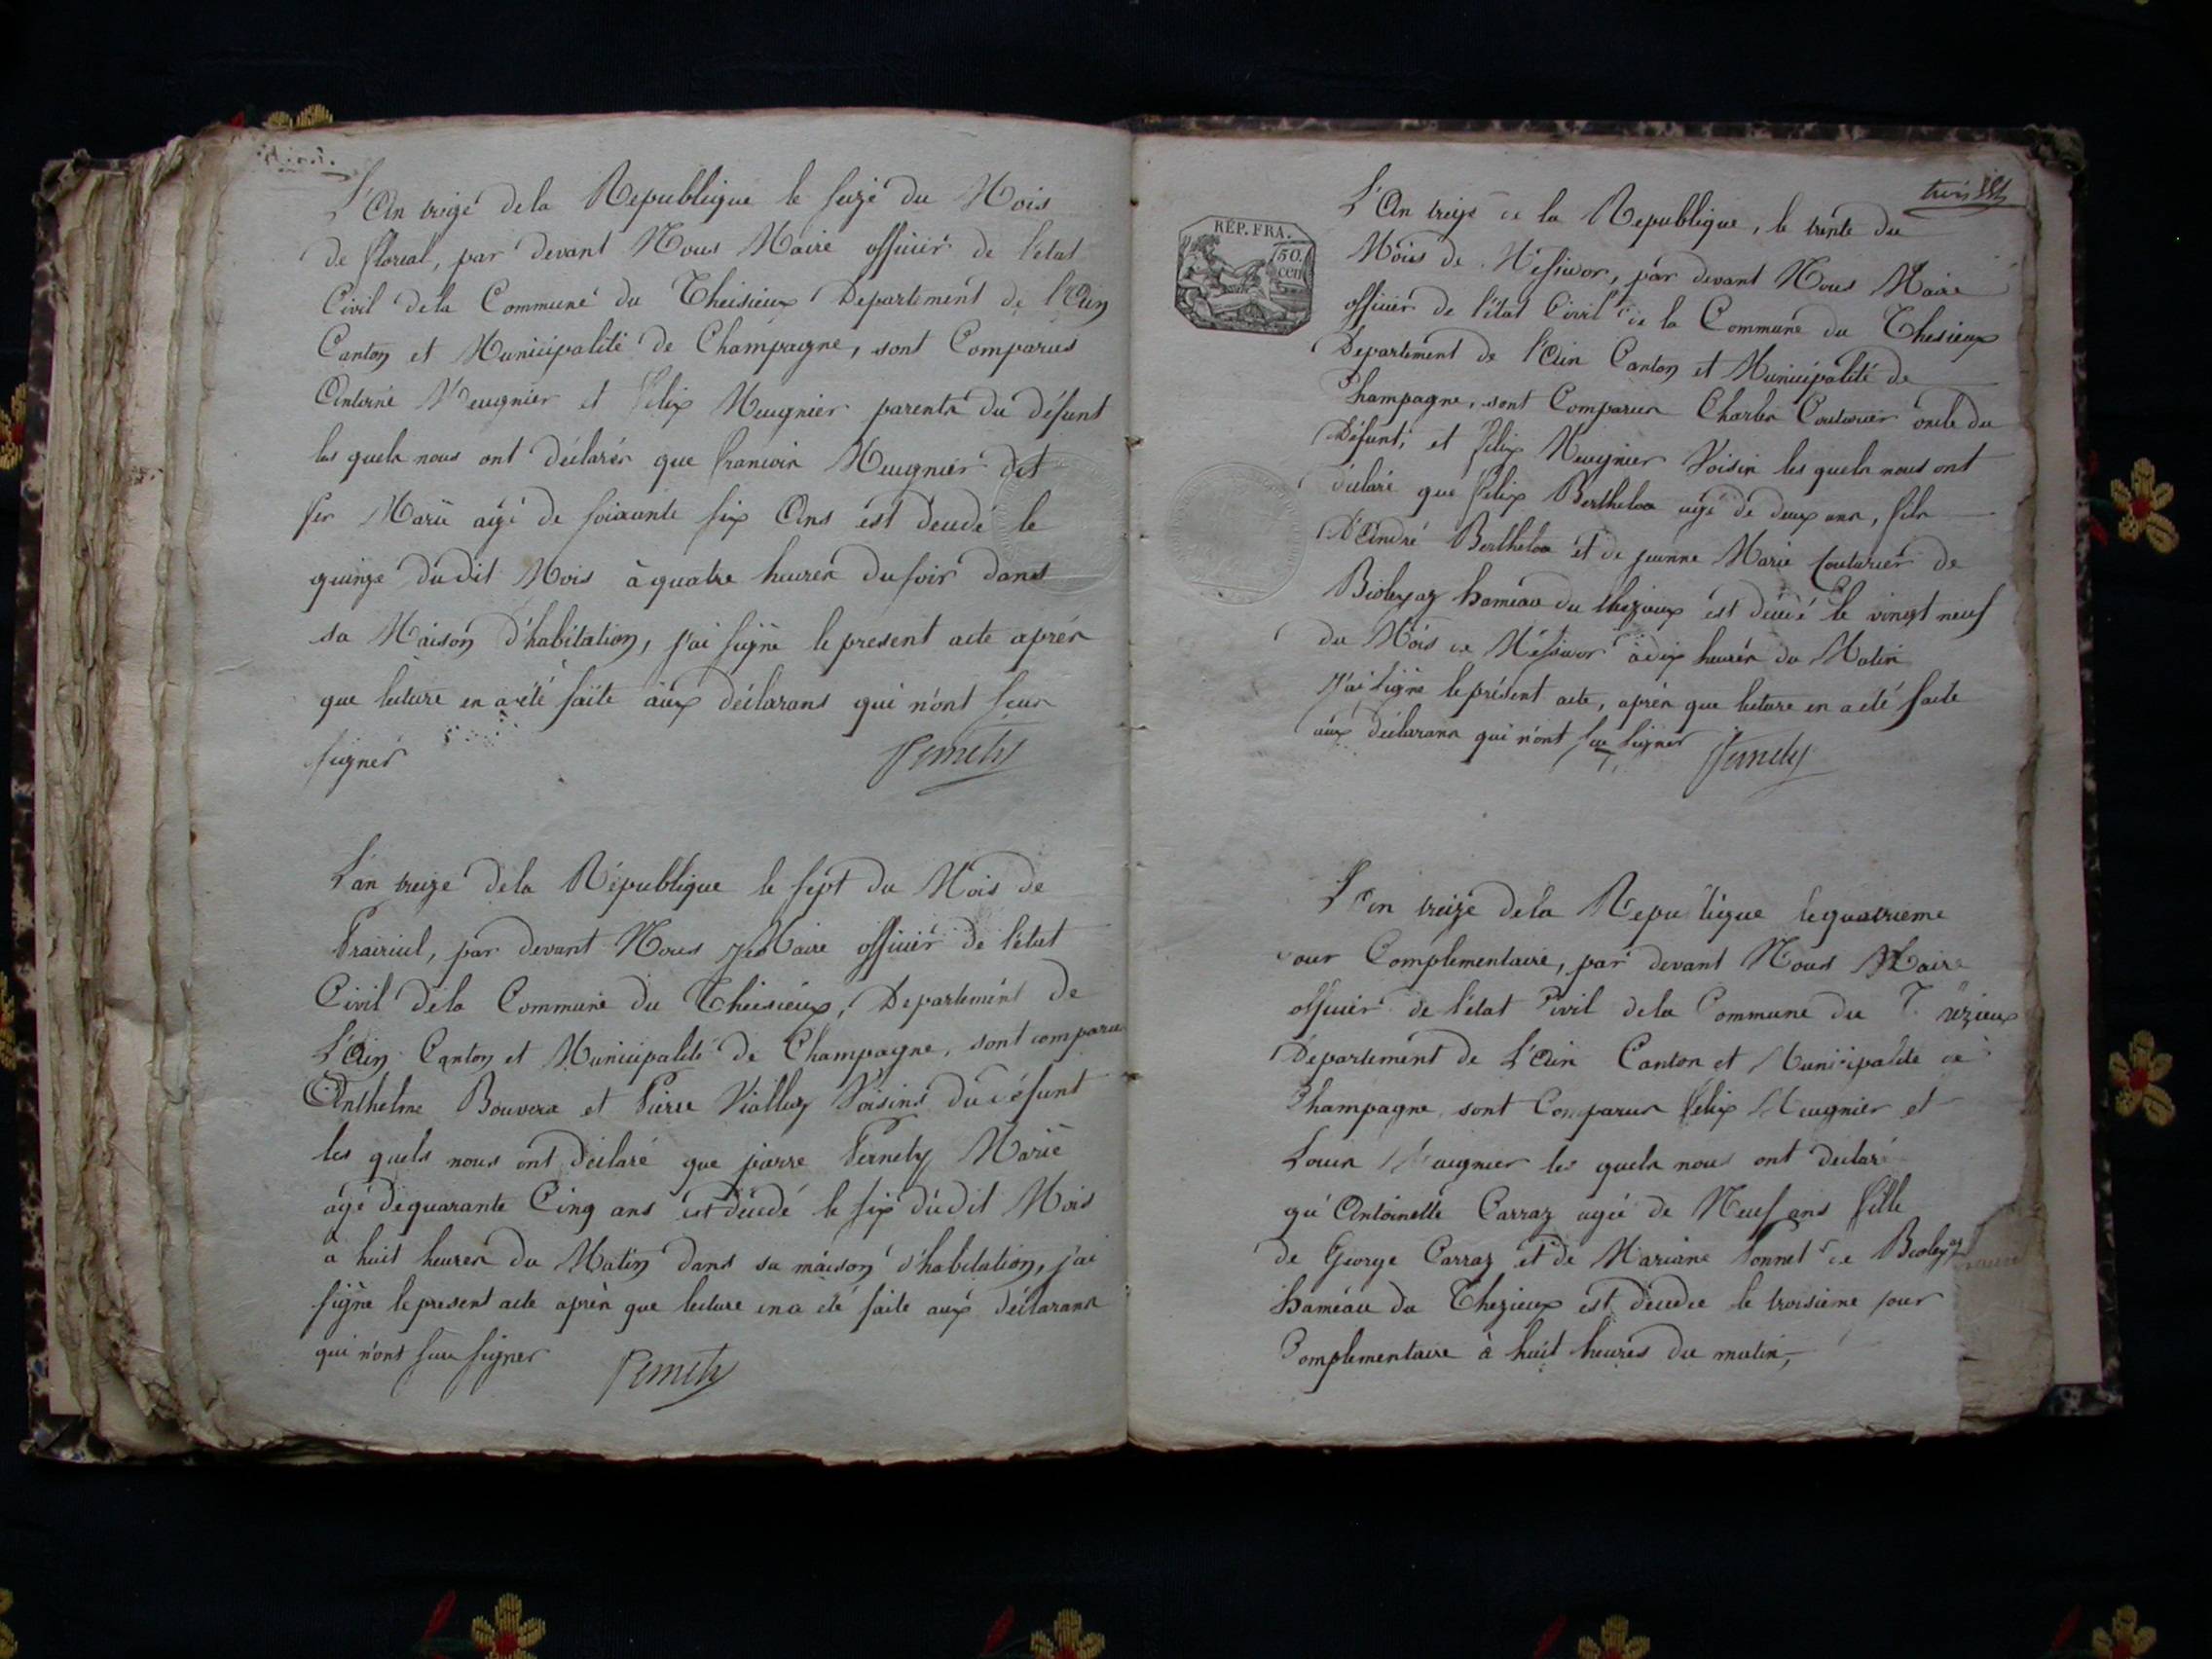 L'An treize dela Republique le seize du Mois
de floreal, par devant Nous Maire officier de l'état
Civil dela Commune du Theisieux Departement de l'Ain
Canton et Municipalité de Champagne, sont Comparus
Antoine Meugnier et felix Meugnier parents du défunt
les quels nous ont déclarés que francois Meugnier dit
Marie agé de soixante six Ans est decédé le
quinze dudit Mois à quatre heures dusoir dans
sa Maison d'habitation, j'ai signé le present acte après
que lecture en a été faite aux déclarans qui n'ont sçus
signer Pernety
L'an treize dela République le sept du Mois de
Prairial, par devant Nous Maire officier de l'état
Civil dela Commune du Theisieux, Departement de
L'Ain Canton et Municipalité de Champagne, sont comparu
Anthelme Bouvere et Pierre Viallez Voisins du défunt
les quels nous ont déclaré que pierre Pernety Marié
agé dequarante Cinq ans est décédé le six dudit Mois
a huit heures du Matin dans sa maison d'habitation, j'ai
signé le present acte après que lecture en a été faite aux déclarans
qui n'ont sçu signer Pernety
trois
RÉP. FRA.
50.
cen
L'An treize de la Republique, le trente du
Mois de Messidor, par devant Nous Maire
officier de l'état Civil de la Commune du Thesieux
Departement de l'Ain Canton et Municipalité de
Champagne, sont Comparus Charles Couturier oncle du
Défunt, et felix Meugnier Voisin les quels nous ont
déclaré que felix Berthelon agé de deux ans, fils
D'André Berthelon et de jeanne Marie Couturier de
Bioleyaz hameau du thezieux est décédé le vingt neuf
du Mois de Messidor à dix heures du Matin
j'ai signé le présent acte, après que lecture en a été faite
aux déclarans qui n'ont sçu signer Pernety
L'an treize dela Republique le quatrieme
jour Complementaire, par devant Nous Maire
officier de l'état Civil dela Commune du
Departement de L'Ain Canton et Municipalité de
Champagne sont Comparus felix Meugnier et
Louis Meugnier les quels nous ont declaré
qu'Antoinette Carraz agée de Neuf ans fille
de George Carraz et de Mariane Bonnet de Bioleyaz
haméau du Thezieux est decedée le troisieme jour
Complementaire à huit heures du matin,